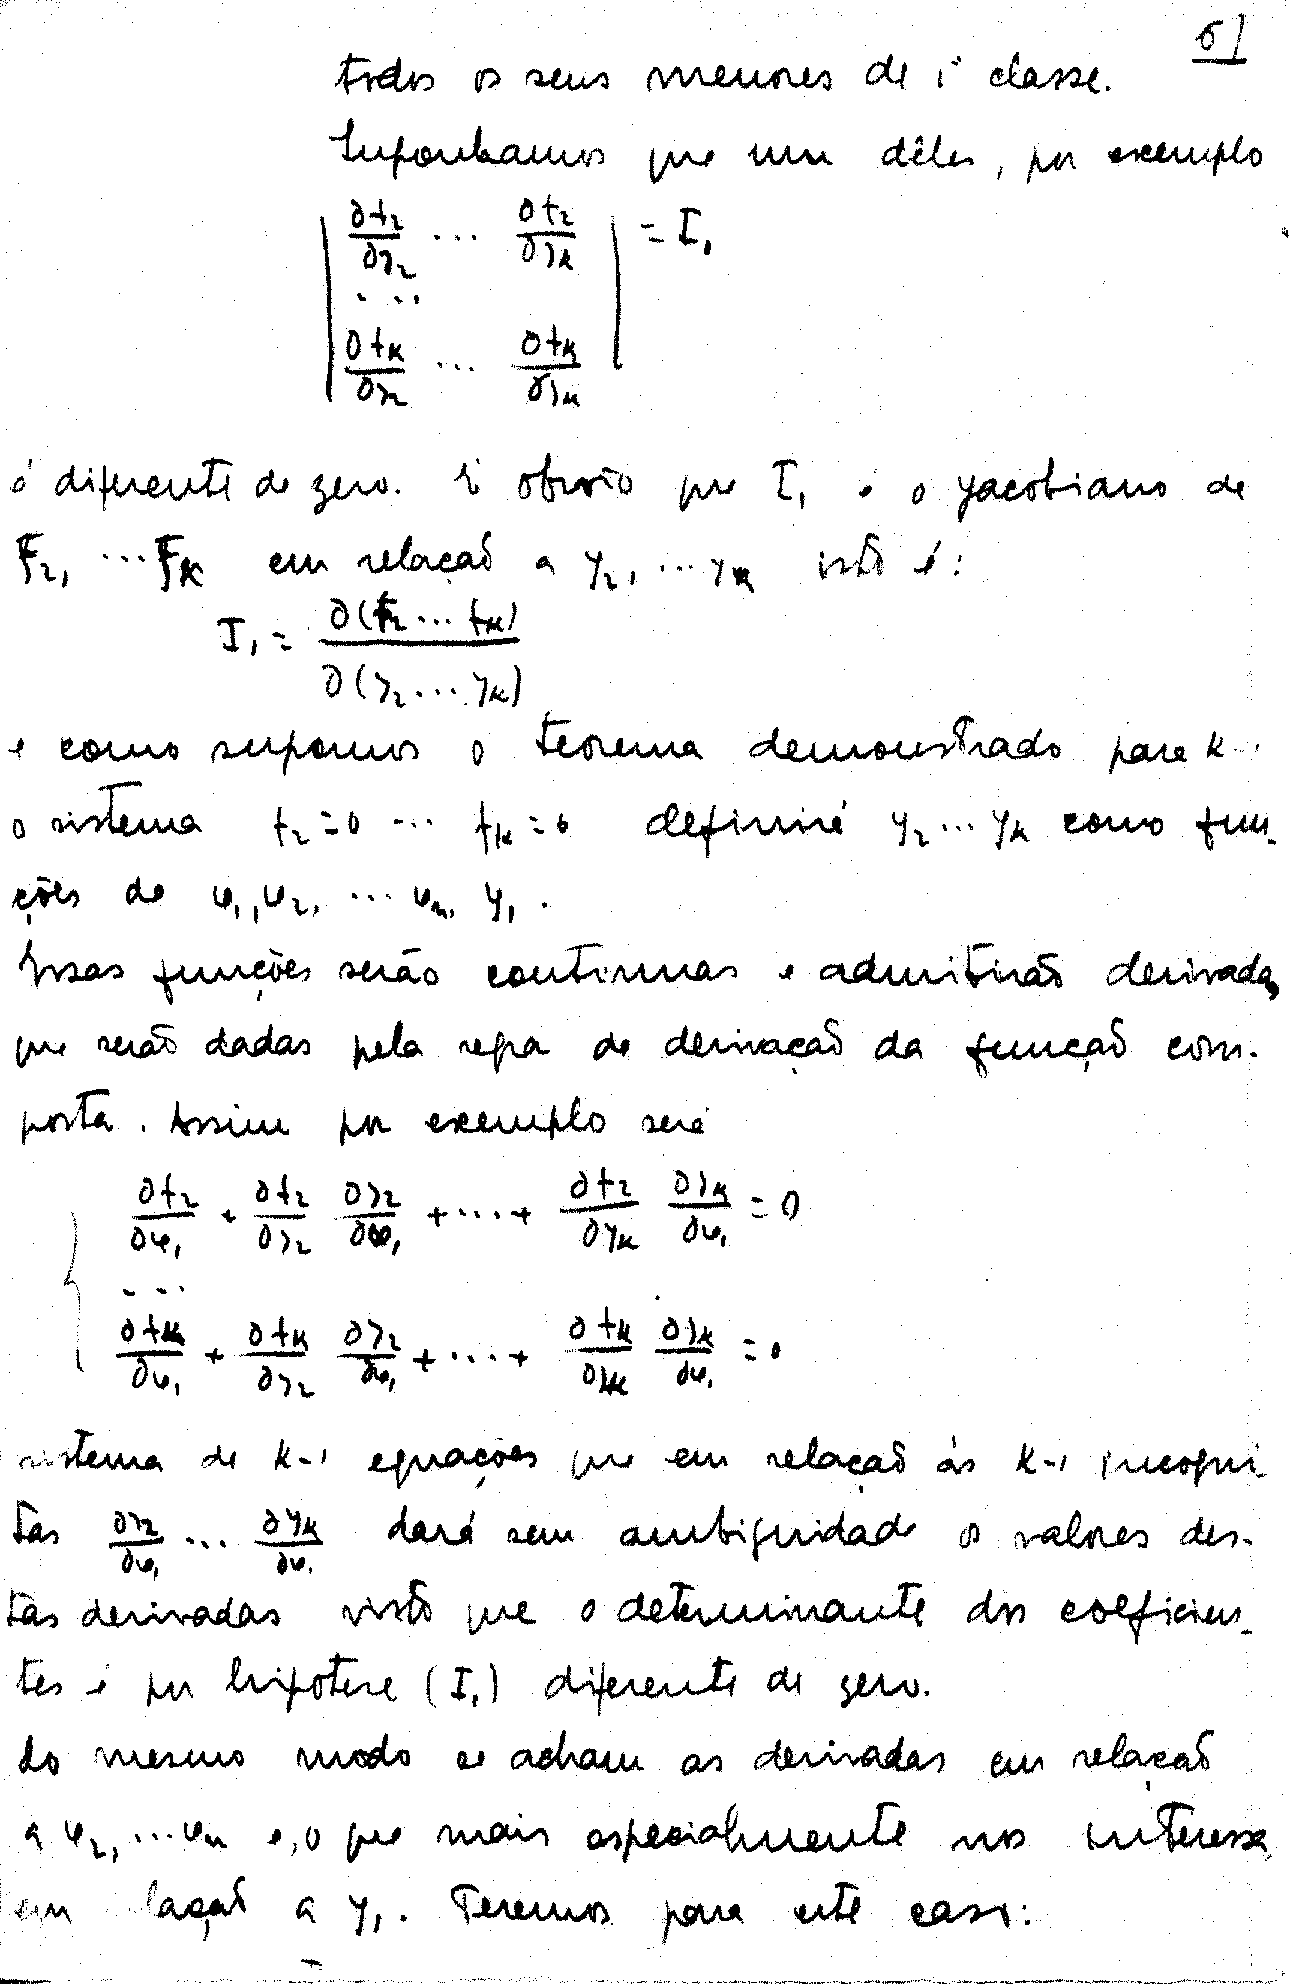 61
todos os seus menores de 1ª classe.
Suponhamos que um dêles, por exemplo
| ∂f₂/∂y₂ ... ∂f₂/∂yₖ | = I₁
...
| ∂fₖ/∂y₂ ... ∂fₖ/∂yₖ |
é diferente de zero. É obvio que I₁ é o yacobiano de
F₂, ... Fₖ em relação a y₂, ... yₖ isto é:
I₁ = ∂(f₂ ... fₖ) / ∂(y₂ ... yₖ)
e como supomos o teorema demonstrado para k-1
o sistema f₂=0 ... fₖ=0 definirá y₂ ... yₖ como fun-
ções de φ₁, φ₂, ... φₙ, y₁.
Essas funções serão continuas e admitirão derivadas
que serão dadas pela regra de derivação da função com-
posta. Assim por exemplo será
∂f₂/∂φ₁ + ∂f₂/∂y₂ ∂y₂/∂φ₁ + ... + ∂f₂/∂yₖ ∂yₖ/∂φ₁ = 0
...
∂fₖ/∂φ₁ + ∂fₖ/∂y₂ ∂y₂/∂φ₁ + ... + ∂fₖ/∂yₖ ∂yₖ/∂φ₁ = 0
sistema de k-1 equações que em relação ás k-1 incogni
tas ∂y₂/∂φ₁ ... ∂yₖ/∂φ₁ dará sem ambiguidade os valores des-
tas derivadas visto que o determinante dos coeficien-
tes é por hipotese (I₁) diferente de zero.
Do mesmo modo se acham as derivadas em relação
a φ₂, ... φₙ e, o que mais especialmente nos interessa,
em lação a y₁. Teremos para este caso: